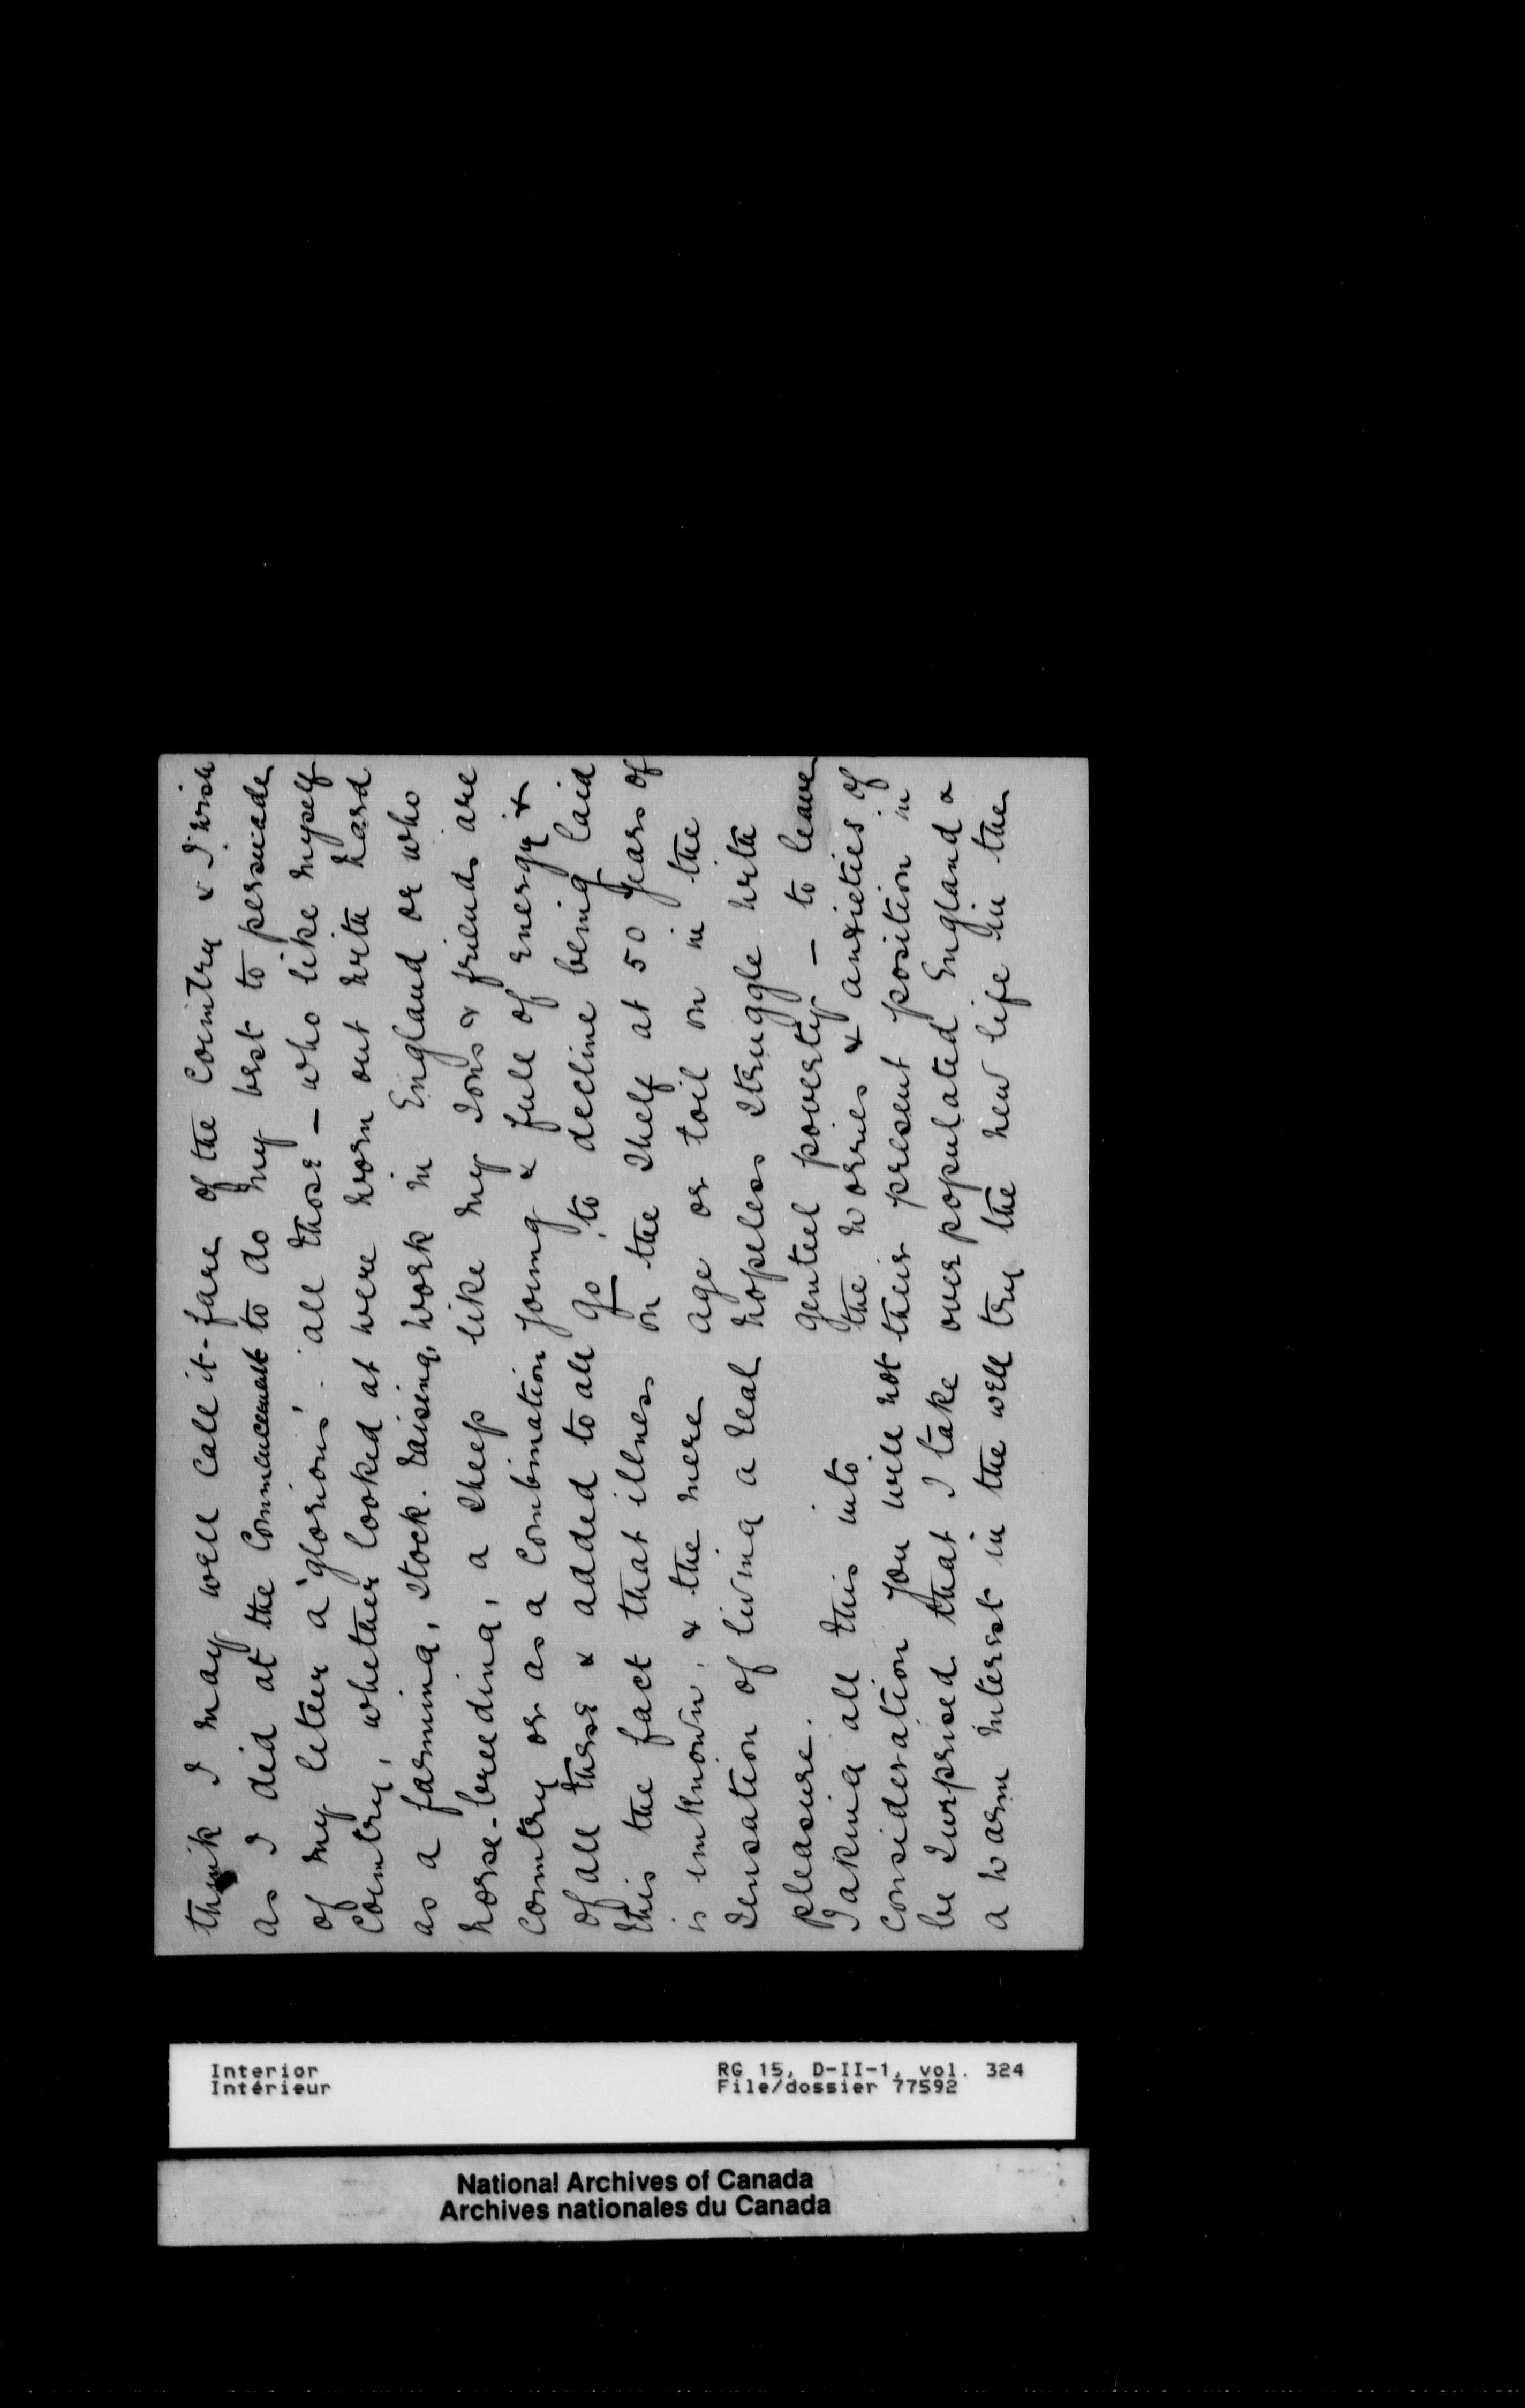 think I may well call it -
as I did at the commencement
of my letter a 'glorious'
country, whether looked at
as a farming, stock-raising,
horse-breeding, a sheep
country or as a combination
of all these & added to all
this the fact that illness
is unknown, & the mere
sensation of living a real
pleasure.
Taking all this into
consideration you will not
be surprised that I take
a warm interest in the well
fare of the country & I wish
to do my best to persuade
all those – who like myself
were worn out with hard
work in England or who
like my sons & friends are
young & full of energy &
go, to decline being laid
on the shelf at 50 years of
age or toil on in the
hopeless struggle with
genteel poverty – to leave
the worries & anxieties of
their present position in
over populated England &
try the new life in the
Interior
Intérieur
RG 15, D-II-1, vol. 324
File/dossier 77592
National Archives of Canada
Archives nationales du Canada